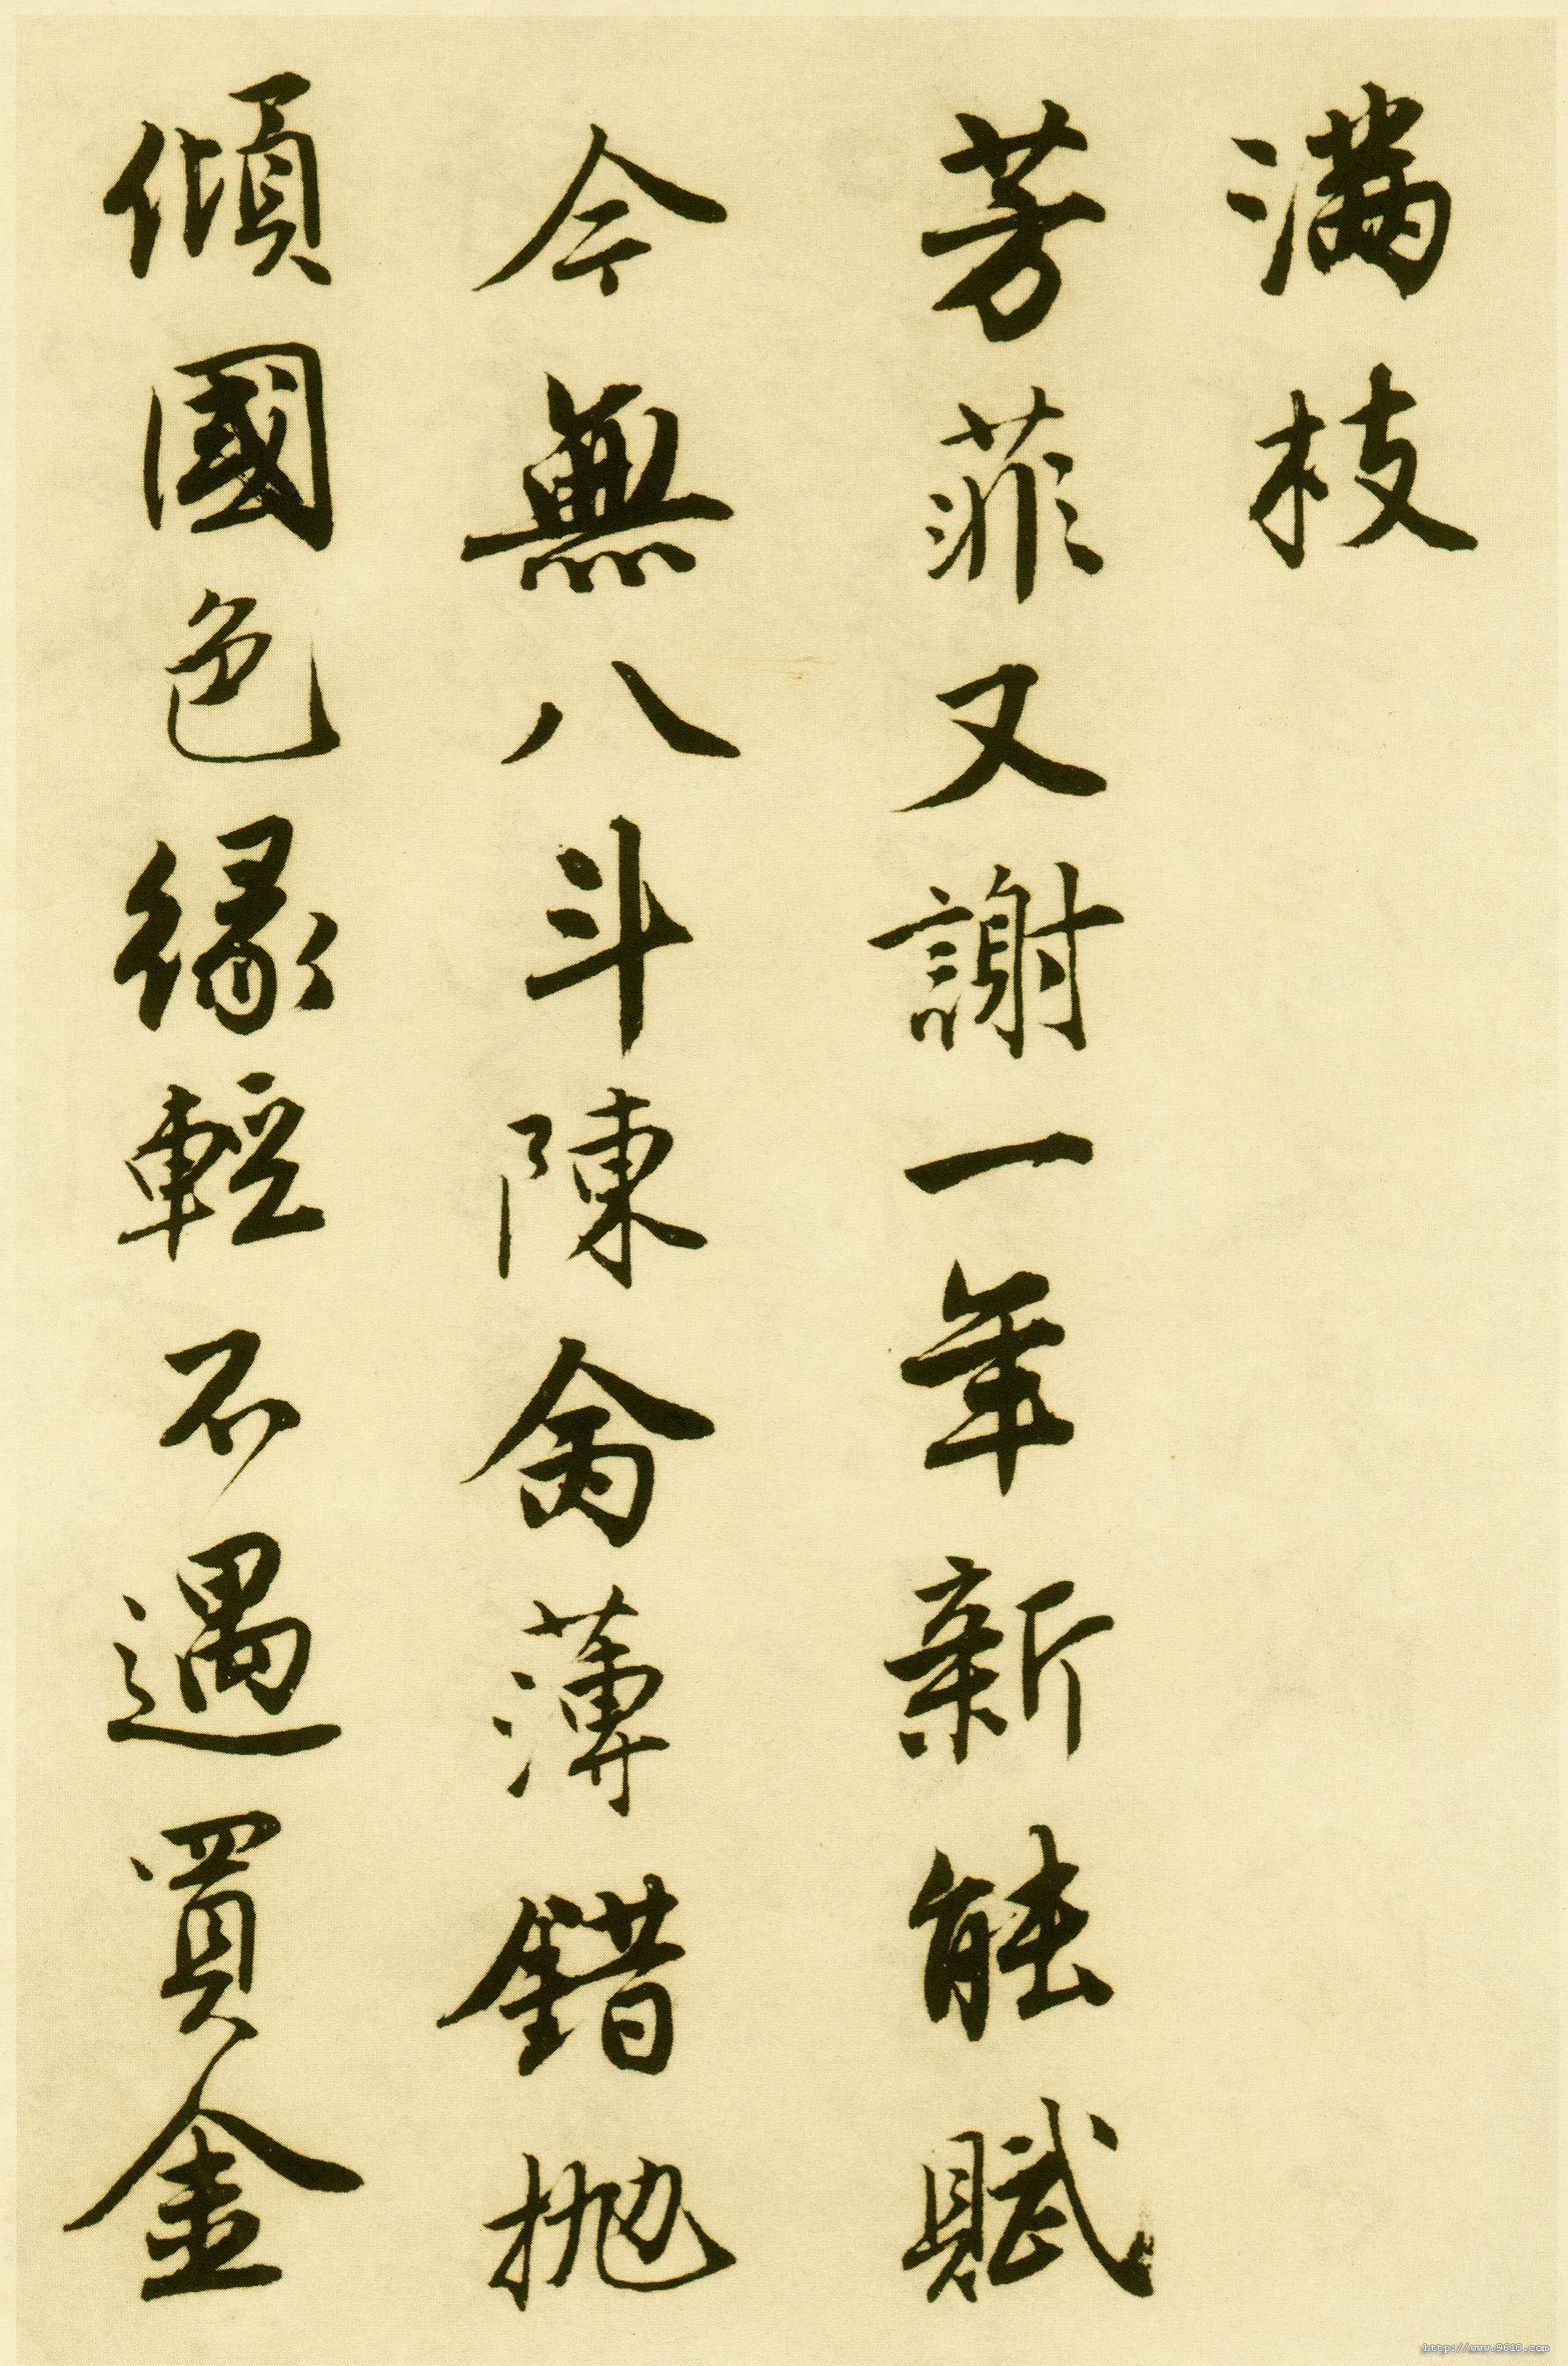 滿枝
芳菲又謝一年新能賦
今無八斗陳禽薄錯抛
傾國色緣輕不遇買金
http://www.9610.com